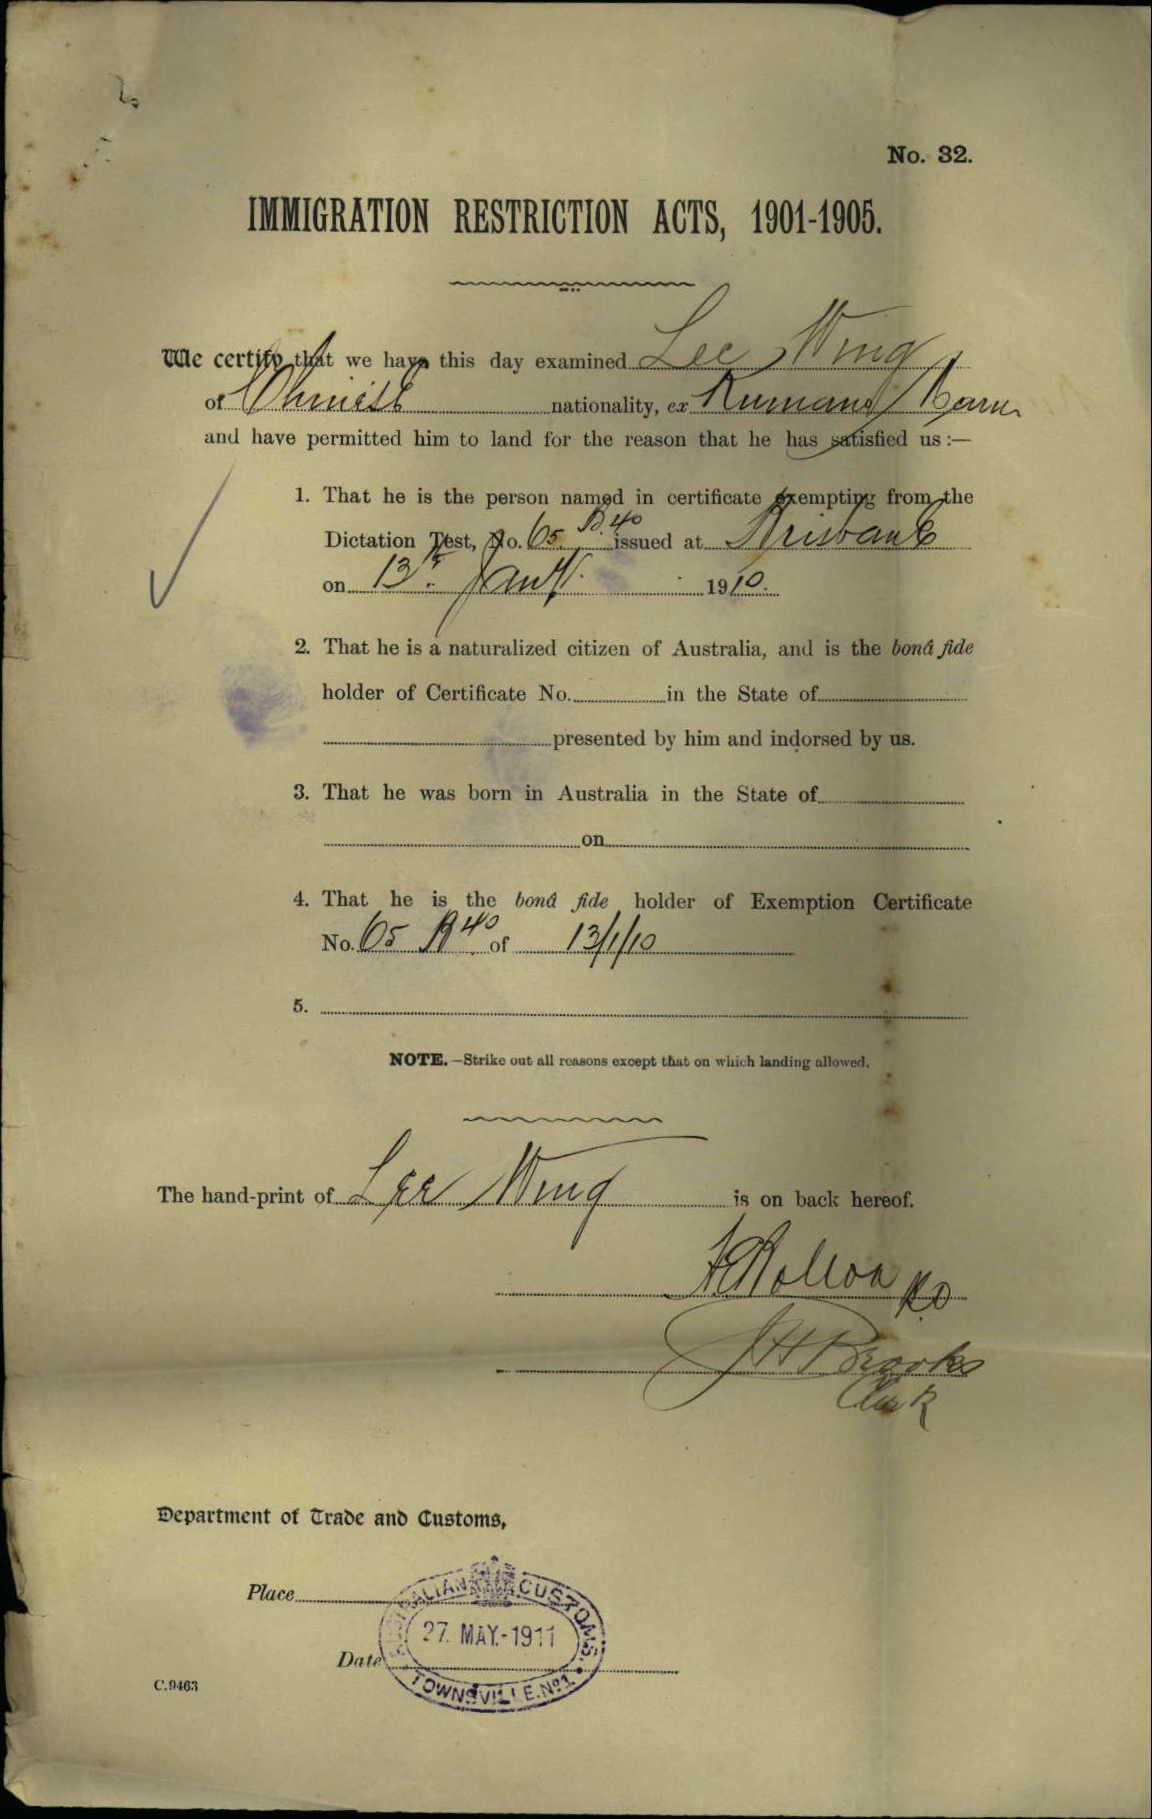 No. 32.
IMMIGRATION RESTRICTION ACTS, 1901-1905.
We certify that we have this day examined Lee Wing
of Chinese nationality, ex Kumano
and have permitted him to land for the reason that he has satisfied us :—
1. That he is the person named in certificate exempting from the
Dictation Test, No. 65 40 issued at Brisbane
on 13th Jany. 1910.
2. That he is a naturalized citizen of Australia, and is the bonâ fide
holder of Certificate No. in the State of
presented by him and indorsed by us.
3. That he was born in Australia in the State of
on
4. That he is the bonâ fide holder of Exemption Certificate
No. 65 40 of 13/1/10
5.
NOTE.—Strike out all reasons except that on which landing allowed.
The hand-print of Lee Wing is on back hereof.
J H Brooks
Clerk
Department of Trade and Customs,
Place
AUSTRALIAN CUSTOMS.
27. MAY.-1911
Date
TOWNSVILLE. No 1
C.9463